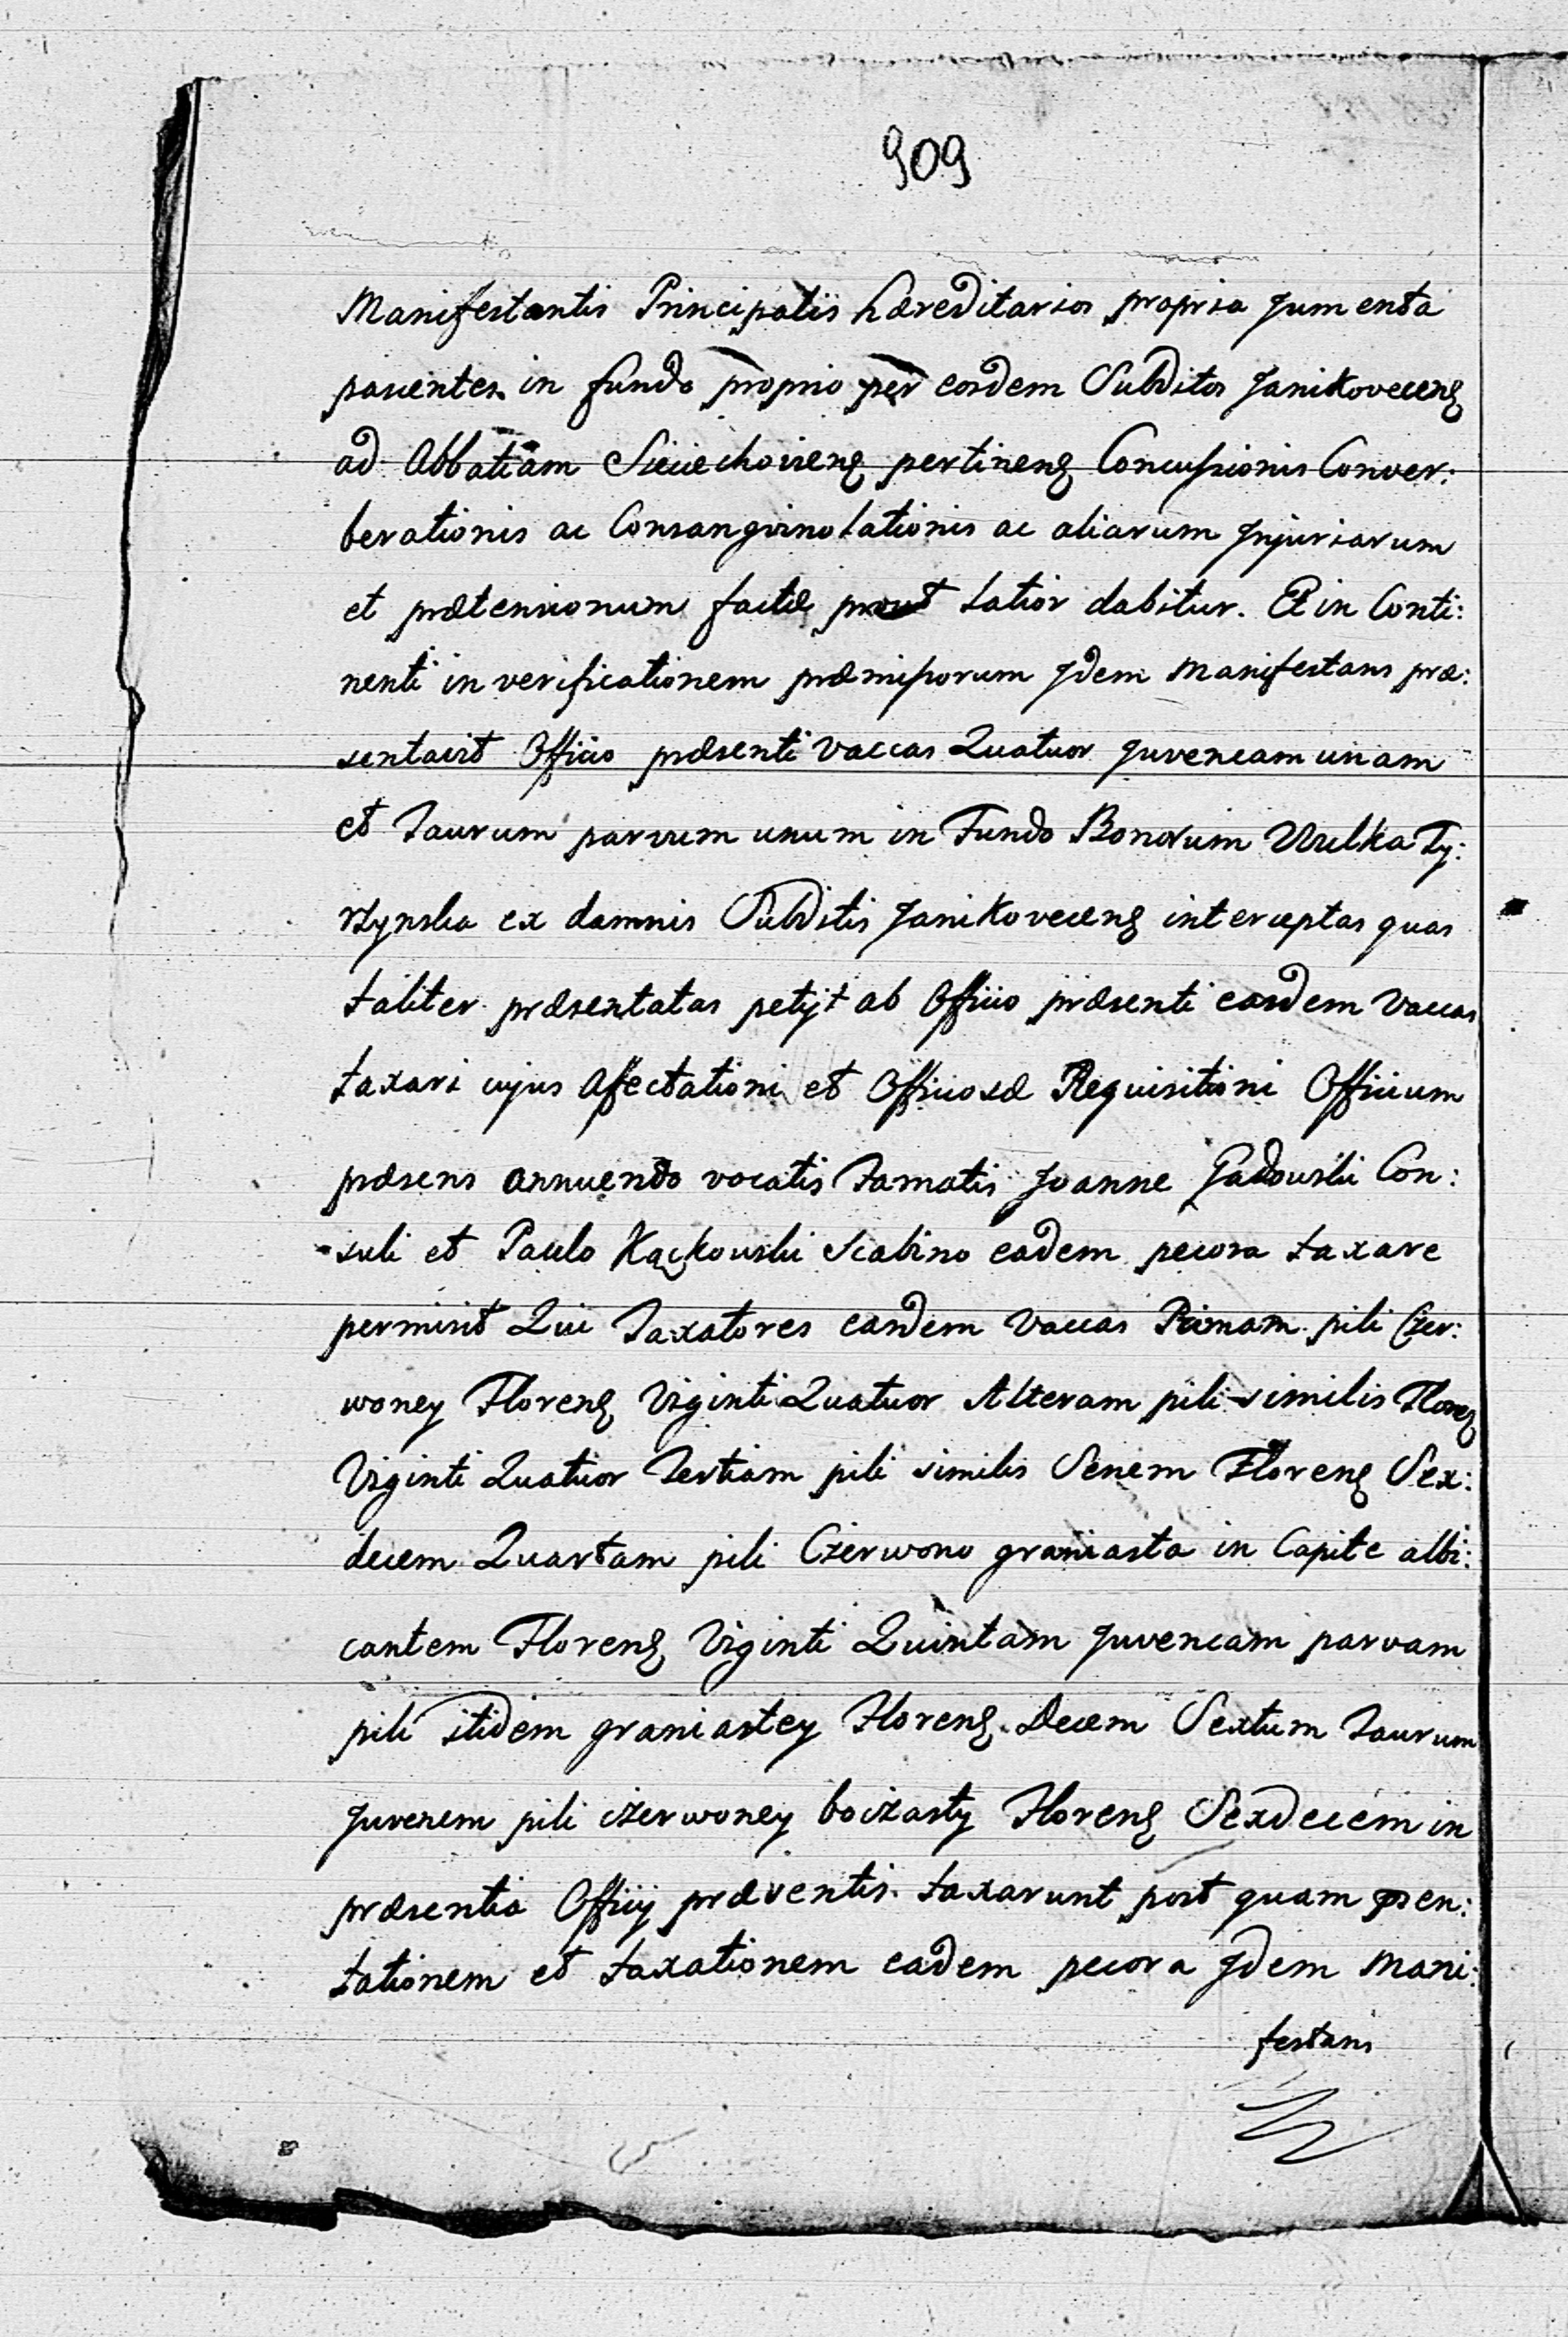 909
Manifestantis Principalis hæreditarios propria Jumenta
pascentes in fundo proprio per eosdem Subditos Janikovecens
ad Abbatiam Sieciechoviens pertinens Concussionis Conver:
berationis ac Consangvinolationis ac aliarum Injuriarum
et prætensionum factæ prout latior dabitur. Et in Conti:
nenti in verificationem præmissorum Idem Manifestans præ:
sentavit Officio præsenti Vaccas Quatuor Juvencam unam
et Taurum parvum unum in Fundo Bonorum Wulka Ty:
rzynska ex damnis Subditis Janikovecens interceptas quas
taliter præsentatas petijt ab Officio præsenti easdem Vaccas
taxari cujus Afectationi et Officiosæ Requisitioni Officium
præsens annuendo vocatis Famatis Joanne Gadowski Con:
suli et Paulo Kąckowski Scabino eadem pecora taxare
permisit Qui Taxatores easdem Vaccas Primam pili Czer:
woney Florens Viginti Quatuor Alteram pili similis Florens
Viginti Quatuor Tertiam pili similis Senem Florens Sex:
decem Quartam pili Czerwono graniasta in Capite albi:
cantem Florens Viginti Quintam Juvencam parvam
pili itidem graniastey Florens Decem Sextum Taurum
Juvenem pili czerwoney boczasty Florens Sexdecem in
præsentia Officij præsentis taxarunt post quam præsen:
tationem et taxationem eadem pecora Idem Mani:
festans